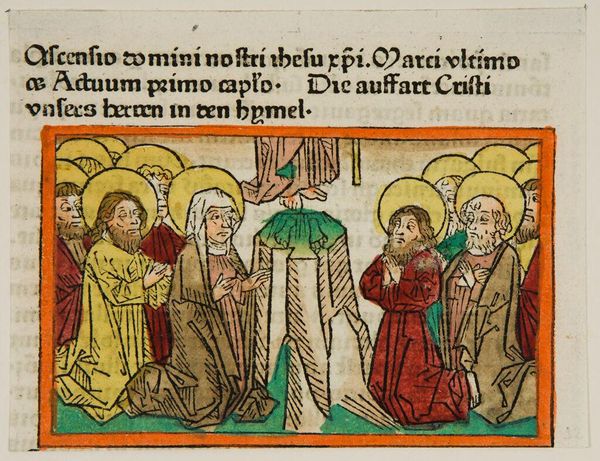 Ascensio domini nostri ihesu xp̄i. Marci vltimo
et Actuum primo capl̓o. Die auffart Cristi
vnsers herren in den hymel.